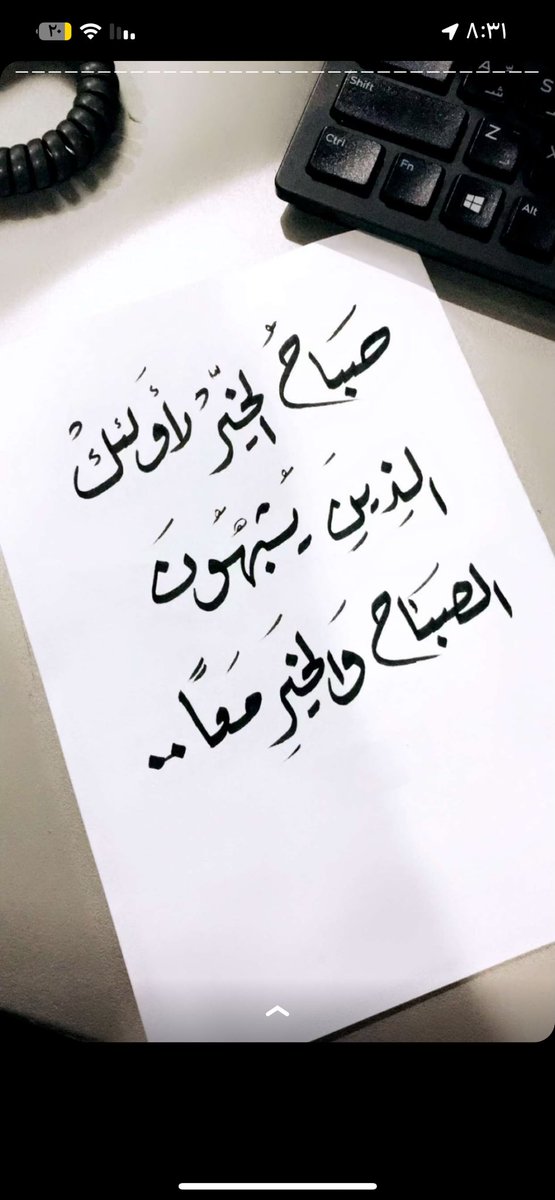 ٢٠
٨:٣١
Shift
S
Ctrl
Fn
Z
Alt
صَبَاحُ الخيْرِ لأولَئِكَ
الذِينَ يُشْبِهُونَ
الصَبَاح وَالخَيرِ مَعاً..